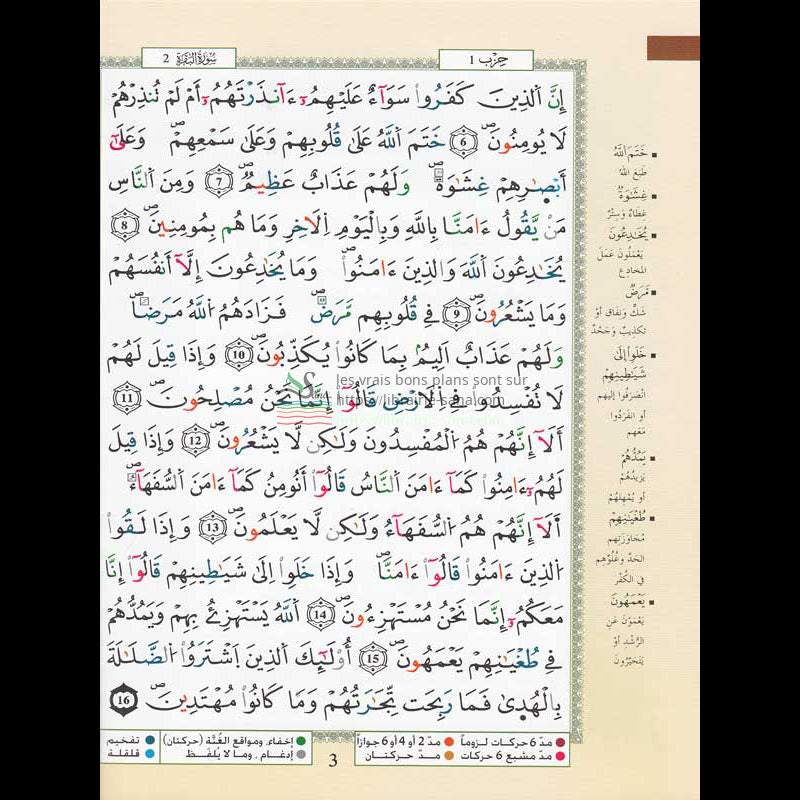 حِزْب 1
سُورَةُ البَقَرَة 2
إِنَّ اَ۬لذِينَ كَفَرُواْ سَوَآءٌ عَلَيْهِمُۥٓ ءَآنذَرْتَهُمُۥٓ أَمْ لَمْ تُنذِرْهُمْ
لَا يُومِنُونَۖ 6 خَتَمَ اَ۬للَّهُ عَلَىٰ قُلُوبِهِمْ وَعَلَىٰ سَمْعِهِمْۖ وَعَلَىٰٓ
أَبْصٰ۪رِهِمْ غِشَٰوَةٞۖ وَلَهُمْ عَذَابٌ عَظِيمٞۖ 7 وَمِنَ اَ۬لنَّاسِ
مَنْ يَّقُولُ ءَامَنَّا بِاللَّهِ وَبِالْيَوْمِ اِ۬لَاخِرِ وَمَا هُم بِمُومِنِينَۖ 8
يُخَٰدِعُونَ اَ۬للَّهَ وَالذِينَ ءَامَنُواْۖ وَمَا يُخَٰدِعُونَ إِلَّآ أَنفُسَهُمْ
وَمَا يَشْعُرُونَۖ 9 فِي قُلُوبِهِم مَّرَضٞۖ فَزَادَهُمُ اُ۬للَّهُ مَرَضاٗۖ
وَلَهُمْ عَذَابٌ اَلِيمُۢ بِمَا كَانُواْ يُكَذِّبُونَۖ 10 وَإِذَا قِيلَ لَهُمْ
لَا تُفْسِدُواْ فِي اِ۬لَارْضِ قَالُوٓاْ إِنَّمَا نَحْنُ مُصْلِحُونَۖ 11
أَلَآ إِنَّهُمْ هُمُ اُ۬لْمُفْسِدُونَ وَلَٰكِن لَّا يَشْعُرُونَۖ 12 وَإِذَا قِيلَ
لَهُمُۥٓ ءَامِنُواْ كَمَآ ءَامَنَ اَ۬لنَّاسُ قَالُوٓاْ أَنُومِنُ كَمَآ ءَامَنَ اَ۬لسُّفَهَآءُۖ
أَلَآ إِنَّهُمْ هُمُ اُ۬لسُّفَهَآءُ وَلَٰكِن لَّا يَعْلَمُونَۖ 13 وَإِذَا لَقُواْ
اُ۬لذِينَ ءَامَنُواْ قَالُوٓاْ ءَامَنَّاۖ وَإِذَا خَلَوِاْ اِلَىٰ شَيَٰطِينِهِمْ قَالُوٓاْ إِنَّا
مَعَكُمُۥٓ إِنَّمَا نَحْنُ مُسْتَهْزِءُونَۖ 14 اَ۬للَّهُ يَسْتَهْزِئُ بِهِمْ وَيَمُدُّهُمْ
فِي طُغْيَٰنِهِمْ يَعْمَهُونَۖ 15 أُوْلَٰٓئِكَ اَ۬لذِينَ اَ۪شْتَرَوُاْ اُ۬لضَّلَٰلَةَ
بِالْهُدَىٰ فَمَا رَبِحَت تِّجَٰرَتُهُمْ وَمَا كَانُواْ مُهْتَدِينَۖ 16
les vrais bons plans sont sur
https://librairie-sana.com
خَتَمَ اَللَّهُ
طَبَعَ اللهُ
غِشَٰوَةٌ
غِطَاءٌ وَسِتْرٌ
يُخَٰدِعُونَ
يَعْمَلُونَ عَمَلَ
المُخَادِعِ
مَّرَضٌ
شَكٌّ وَنِفَاقٌ أَوْ
تَكْذِيبٌ وَجَحْدٌ
خَلَوِاْ اِلَىٰ
شَيَٰطِينِهِمْ
انْصَرَفُوا إليهم
أو انْفَرَدُوا
مَعَهم
يَمُدُّهُمْ
يَزِيدُهُمْ
أو يُمْهِلُهُمْ
طُغْيَٰنِهِمْ
مُجَاوَزَتِهِم
الحَدَّ وغُلُوِّهِم
في الكُفْرِ
يَعْمَهُونَ
يَعْمَوْنَ عَنِ
الرُّشْدِ أوْ
يَتَحَيَّرُونَ
مدّ 6 حركات لزوماً مدّ 2 أو 4 أو 6 جوازاً إخفاء، ومواقع الغُنَّة (حركتان) تفخيم
مدّ مشبع 6 حركات مدّ حركتان إدغام، وما لا يُلفَظ قلقلة
3